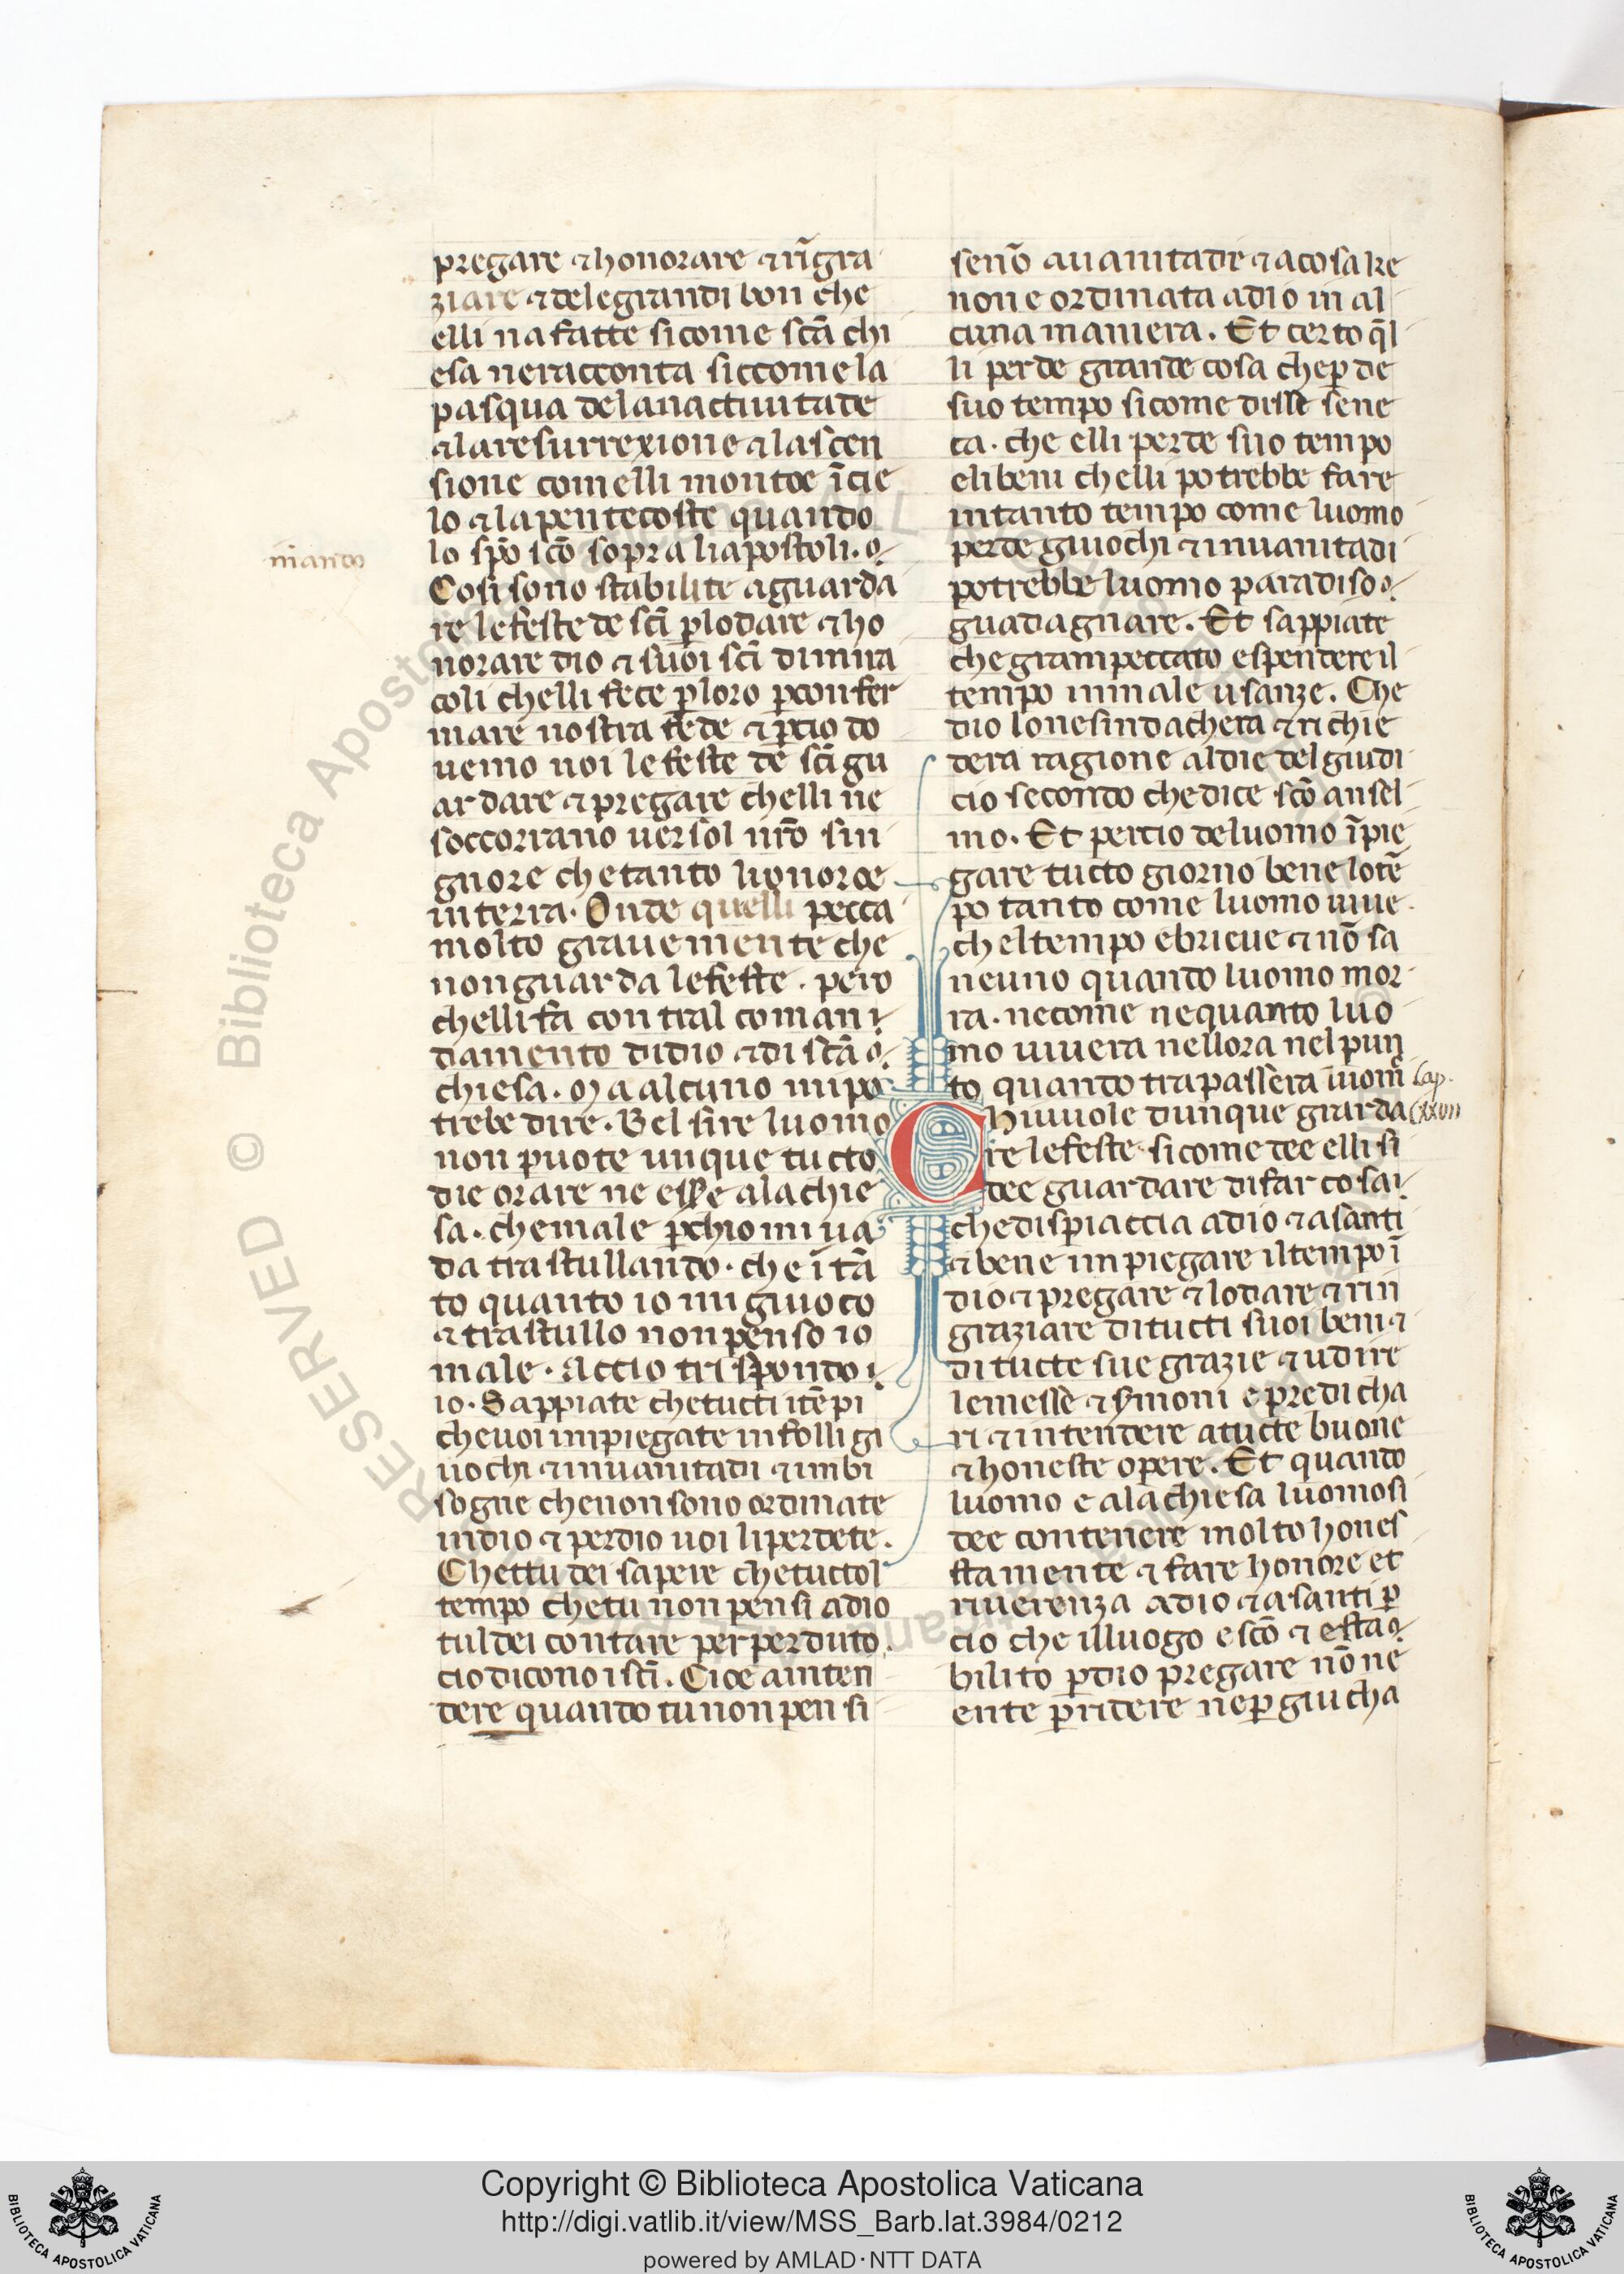 pregare ⁊ honorare ⁊ rīgra
ziare ⁊ delegrandi bon che
elli na fatte sicome scā chi
esa neracconta siccome la
pasqua delanactiuitade
⁊ laresurrexione ⁊ lascen
sione com elli montoe īcie
lo ⁊ lapentecoste quando
lo spō scō sopra liapostoli.
mando
Cosi sono stabilite aguarda
re lefeste de scī ꝑlodare ⁊ ho
norare dio ⁊ suoi scī dimira
coli chelli fece ꝑloro ꝑconfer
mare nostra fede ⁊ ꝑcio do
uemo noi lefeste de scī gu
ardare ⁊ pregare chelli ne
soccorrano uersol nrō sin
gnore chetanto lionoroe
interra. Onde quelli pecca
molto grauemente che
nonguarda lefeste. pero
chelli fa contral coman
damento didio ⁊ di scā
chiesa. Ma alcuno mi po
trebe dire. Bel sire luomo
non puote unque tucto
die orare ne esse̅ alachie
sa. chemale ꝑchio mi ua
da trastullando. che ī tā
to quanto io mi giuoco
⁊ trastullo non penso io
male. Accio ti rispondo
io. Sappiate chetucti itēpi
cheuoi impiegate infolli gi
uochi ⁊ inuanitadi ⁊ imbi
sogne chenon sono ordinate
indio ⁊ perdio uoi liperdete.
Chettu dei sapere chetuctol
tempo chetu non pensi adio
tul dei contare per perduto.
cio dicono i scī. Cioe ainten
dere quando tu non pensi
senō auanitade ⁊ acosa ke
non e ordinata adio in al
cuna maniera. Et certo q̄l
li perde grande cosa cheꝑde
suo tempo sicome disse sene
ca. che elli perde suo tempo
elibeni chelli potrebbe fare
intanto tempo come luomo
perde giuochi ⁊ inuanitadi
potrebbe luomo paradiso
guadagnare. Et sappiate
che gram peccato espendere il
tempo inmale usanze. Che
dio lonesindachera ⁊ richie
dera ragione aldie del giudi
cio secondo chedice scō ansel
mo. Et percio deluomo īpie
gare tucto giorno bene lotē
po tanto come luomo uiue.
cheltempo ebrieue ⁊ nō sa
neuno quando luomo mor
ra. necome nequanto luo
mo uiuera nellora nel pun
to quando trapassera luom̄
Cap. CXXVII
Chi uuole dunque guarda
re lefeste sicome dee elli si
dee guardare difar cosa
chedispiaccia adio ⁊ asanti
⁊ bene impiegare iltempo ī
dio ⁊ pregare ⁊ lodare ⁊ rin
graziare ditucti suoi beni ⁊
ditucte sue grazie ⁊ udire
lemesse ⁊ s̄moni e predicha
ri ⁊ intendere atucte buone
⁊ honeste opere. Et quando
luomo e alachiesa luomosi
dee contenere molto hones
tamente ⁊ fare honore et
riuerenza adio ⁊ asanti ꝑ
cio che illuogo e scō ⁊ esta
bilito ꝑdio pregare nō ne
ente ꝑridere neꝑ giucha
© Biblioteca Apostolica Vaticana ALL RIGHTS RESERVED
Copyright © Biblioteca Apostolica Vaticana
http://digi.vatlib.it/view/MSS_Barb.lat.3984/0212
powered by AMLAD·NTT DATA
BIBLIOTECA APOSTOLICA VATICANA
BIBLIOTECA APOSTOLICA VATICANA